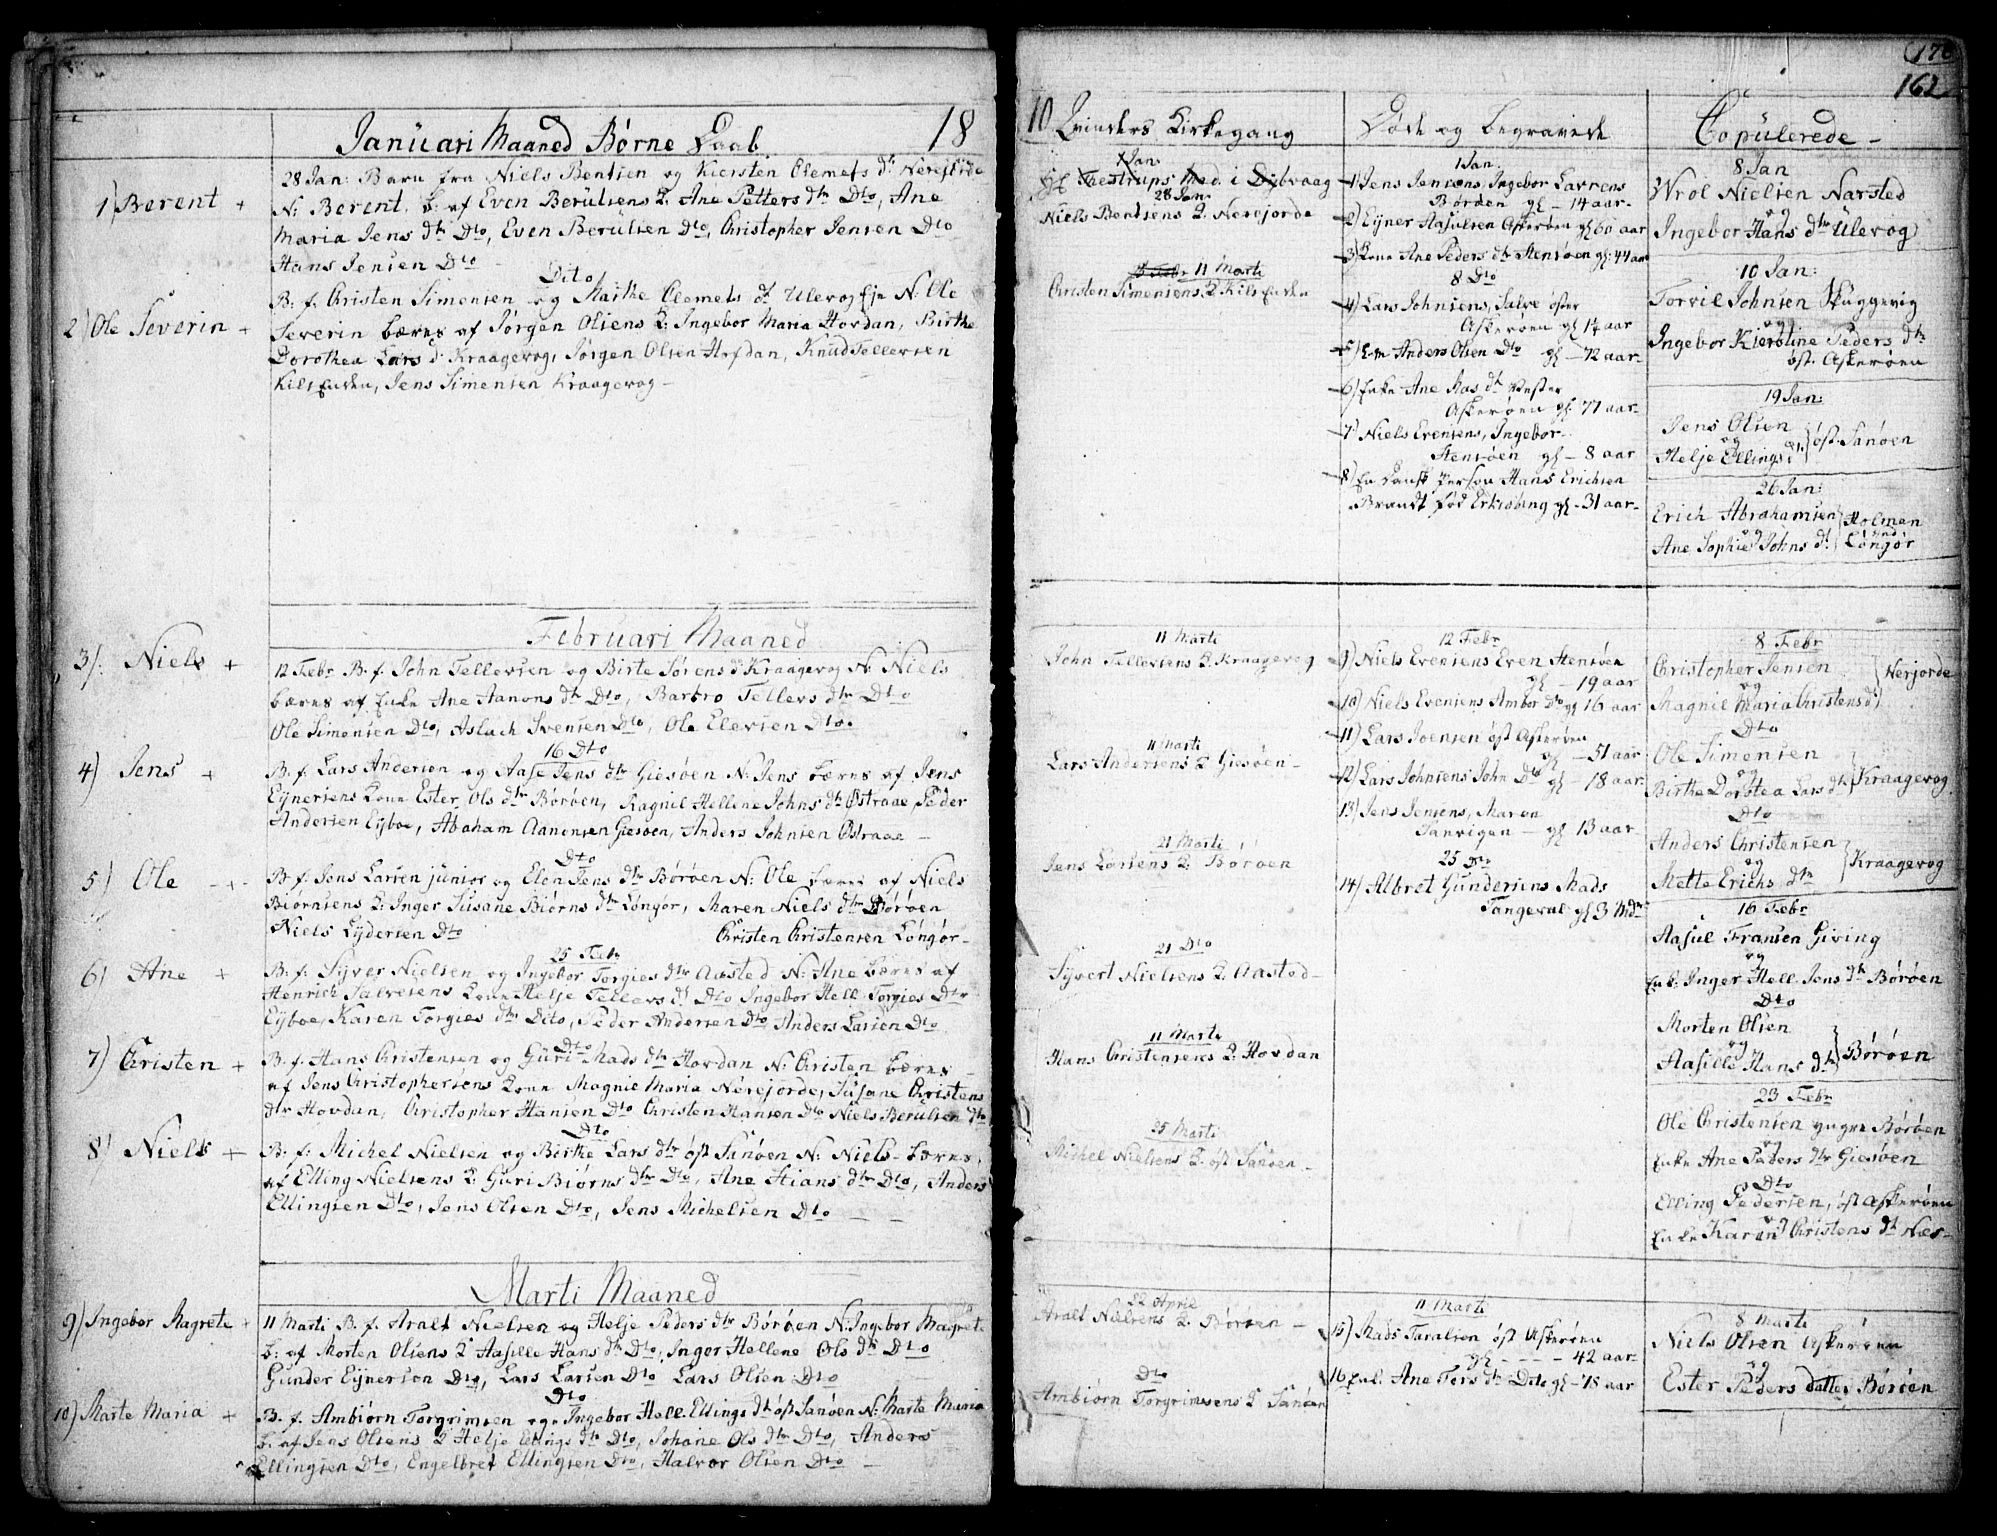 Januari Maaned Børne Daab 18
1) Berent +
28 Jan: Barn fra Niels Bentsen og Kiersten Clemets dtr Nerejorde
N: Berent. b: af Even Berulsens K: Ane Petters dtr Dto, Ane
Maria Jens dtr Dto, Even Berulsen Dto, Christopher Jensen Dto
Hans Jensen Dto
Dito
2) Ole Severin +
B: f. Christen Simensen og Marthe Clemets dtr Ulevog Eje N: Ole
Severin bæres af Jørgen Olsens K: Ingebor Maria Hovdan, Birthe
Dorothea Lars d: Kraagevog, Jørgen Olsen Hofdan, Knud Tellevsen
Kilsfucken, Jens Simensen Kraagevog -
Februari Maaned
3). Niels +
12 Febr B: f. John Tellevsen og Birte Sørens d: Kraagevog N: Niels
bæres af Enke Ane Aanons dtr Dto, Barbro Tellevs dtr Dto
Ole Simensen Dto, Aslach Svensen Dto, Ole Elevsen Dto.
16 Dto
4) Jens +
B: f. Lars Andersen og Aase Jens dtr Giesøen N: Jens bæres af Jens
Eynersens Kone Ester Ols dtr Børøen, Ragnil Hellene Johns dtr Østraae, Peder
Andersen Eyboe, Abaham Aanonsen Giesøen, Anders Johnsen Østraae -
Dto
5) Ole - +
B: f. Jens Larsen junior og Elen Jens dtr Børøen N: Ole bæres af Niels
Biørnsens K: Inger Susane Biørns dtr Løngør, Maren Niels dtr Børøen
Niels Eydersen Dto Christen Christensen Løngør -
25 Febr
6) Ane +
B: f. Syver Nielsen og Ingebor Torgies dtr Aasted N: Ane bæres af
Henrich Salvesens Kone Helje Tellevs d: Dto Ingebor Hell: Torgies Dtr
Eyboe, Karen Torgies dtr Dito, Peder Andersen Dto, Anders Larsen Dto
Dto
7) Christen +
B: f. Hans Christensen og Guri Mads dtr Hovdan N: Christen bæres
af Jens Christophersens Kone Magnil Maria Nerejorde, Susane Christens
dtr Hovdan, Christopher Hansen Dto Christen Hansen Dto Niels Berulsen Dto
Dto
8) Niels +
B: f: Michel Nielsen og Birthe Lars dtr øst Sanøen N: Niels - bæres
af Elling Nielsens K: Guri Biørns dtr Dto, Ane Stians dtr Dto, Anders
Ellingsen Dto, Jens Olsen Dto, Jens Michelsen Dto - -
Marti Maaned
9) Ingebor Magrete +
11 Marti B. f. Aralt Nielsen og Helje Peders dtr Børøen N: Ingebor Magrete
b: af Morten Olsens K Aasille Hans dtr Dto, Inger Hellene Ols dtr Dto
Gunder Eynerson Dto, Lars Larsen Dto Lars Olsen Dto
Dto
10) Marte Maria +
B. f. Ambiørn Torgrimsen og Ingebor Hell. Ellings dtr øst Sanøen N: Marte Maria
b: af Jens Olsens K Helje Ellings dtr Dto, Johane Ols dtr Dto, Anders
Ellingsen Dto, Engelbret Ellingsen Dto, Halvor Olsen Dto -
170
162
10 Qvinders Kirkegang
1 Jan:
Thestrups Mad. i Dybvaag
28 Jan:
Niels Bentsens K. Nerejorde
11 Marti
Christen Simensens K Kilsfucken
11 Marti
John Tellevsens K. Kraagevog
11 Marti
Lars Andersens K Giesøen -
21 Marti
Jens Larsens K: Børøen
21 Dto
Syvert Nielsens K. Aasted -
11 Marti
Hans Christensens K. Hovdan
25 Marti
Michel Nielsens K. øst Sanøen -
22 April
Aralt Nielsens K. Børøen -
Dto
Ambiørn Torgrimsens K Sanøen
Døde og begravede
1 Jan.
1) Jens Jensens, Ingebor Lavrens
Børøen gl - 14 aar -
2) Eyner Aasulsen Askerøen gl 60 aar
3) Kone Ane Peders dtr Stensøen gl: 44 aar
8 Dto
4) Lars Johnsens, Salve øster
Askerøen gl 14 aar
5) Anders Olsen Dto gl - 72 aar -
6) Enke Ane Aas dtr Vester
Askerøen gl: 77 aar -
7) Niels Evensens, Ingebor -
Stensøen gl - 8 aar
8) En Dansk Person Hans Erichsen
Brandt fød Erkiøbing gl - 31 aar -
12 Febr
9) Niels Evensens Even Stensøen
gl - 19 aar
10) Niels Evensens Ambor Dto gl 16 aar
11) Lars Joensen øst Askerøen
gl - 51 aar
12) Lars Johnsens John Dto gl - 18 aar
13) Jens Jensens, Maren
Sanvigen - gl 13 aar
25 Dto
14) Albret Gundersens Mads
Tangeval gl 3 Mdr
11 Marti
15) Mads Taralsen øst Askerøen
gl - - - - 42 aar -
16 Enke Ane Ters dtr Dito gl - 78 aar
Copulerede -
8 Jan
Wrol Nielsen Narsted
og
Ingebor Hans dtr Ulevog
10 Jan:
Torvil Johnsen Skuggevig
og
Ingebor Kierstine Peders dtr
øst. Askerøen
19 Jan:
Jens Olsen
og } øst. Sanøen
Helje Ellings dtr
26 Jan:
Erich Abrahamsen } Holman
og ind
Ane Sophie Johns dtr Løngør
8 Febr
Christopher Jensen
og } Nerjorde
Magnil Maria Christens d
Dto
Ole Simensen
og } Kraagevog
Birthe Dorotea Lars dtr
Dto
Anders Christensen
og } Kraagevog
Mette Erichs dtr
16 Febr
Aasul Fransen Giving
og
Enk: Inger Hell. Jens dtr Børøen
Dto
Morten Olsen
og } Børøen
Aasille Hans dtr
23 Febr
Ole Christensen yngre Børøen
og
Enke Ane Peders dtr Giesøen
Dto
Elling Pedersen, øst Askerøen
og
Enke Karen Christens dtr Næs -
8 Marti
Niels Olsen Askerøen
og
Ester Peders datter Børøen